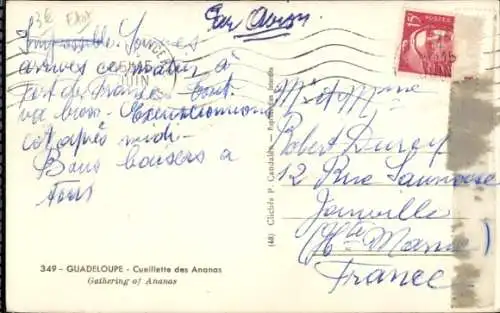 3€
Par Avion
15F POSTES
arrivés ce matin à
Fort de France. Tout
va bien. Excursionnons
cet après midi.
Bons baisers à
Tous
Mr et Mme
Robert Duray
12 Rue
Joinville
(Hte Marne)
France
(48) Clichés P. Candalen - Reproduction Interdite
349 - GUADELOUPE - Cueillette des Ananas
Gathering of Ananas